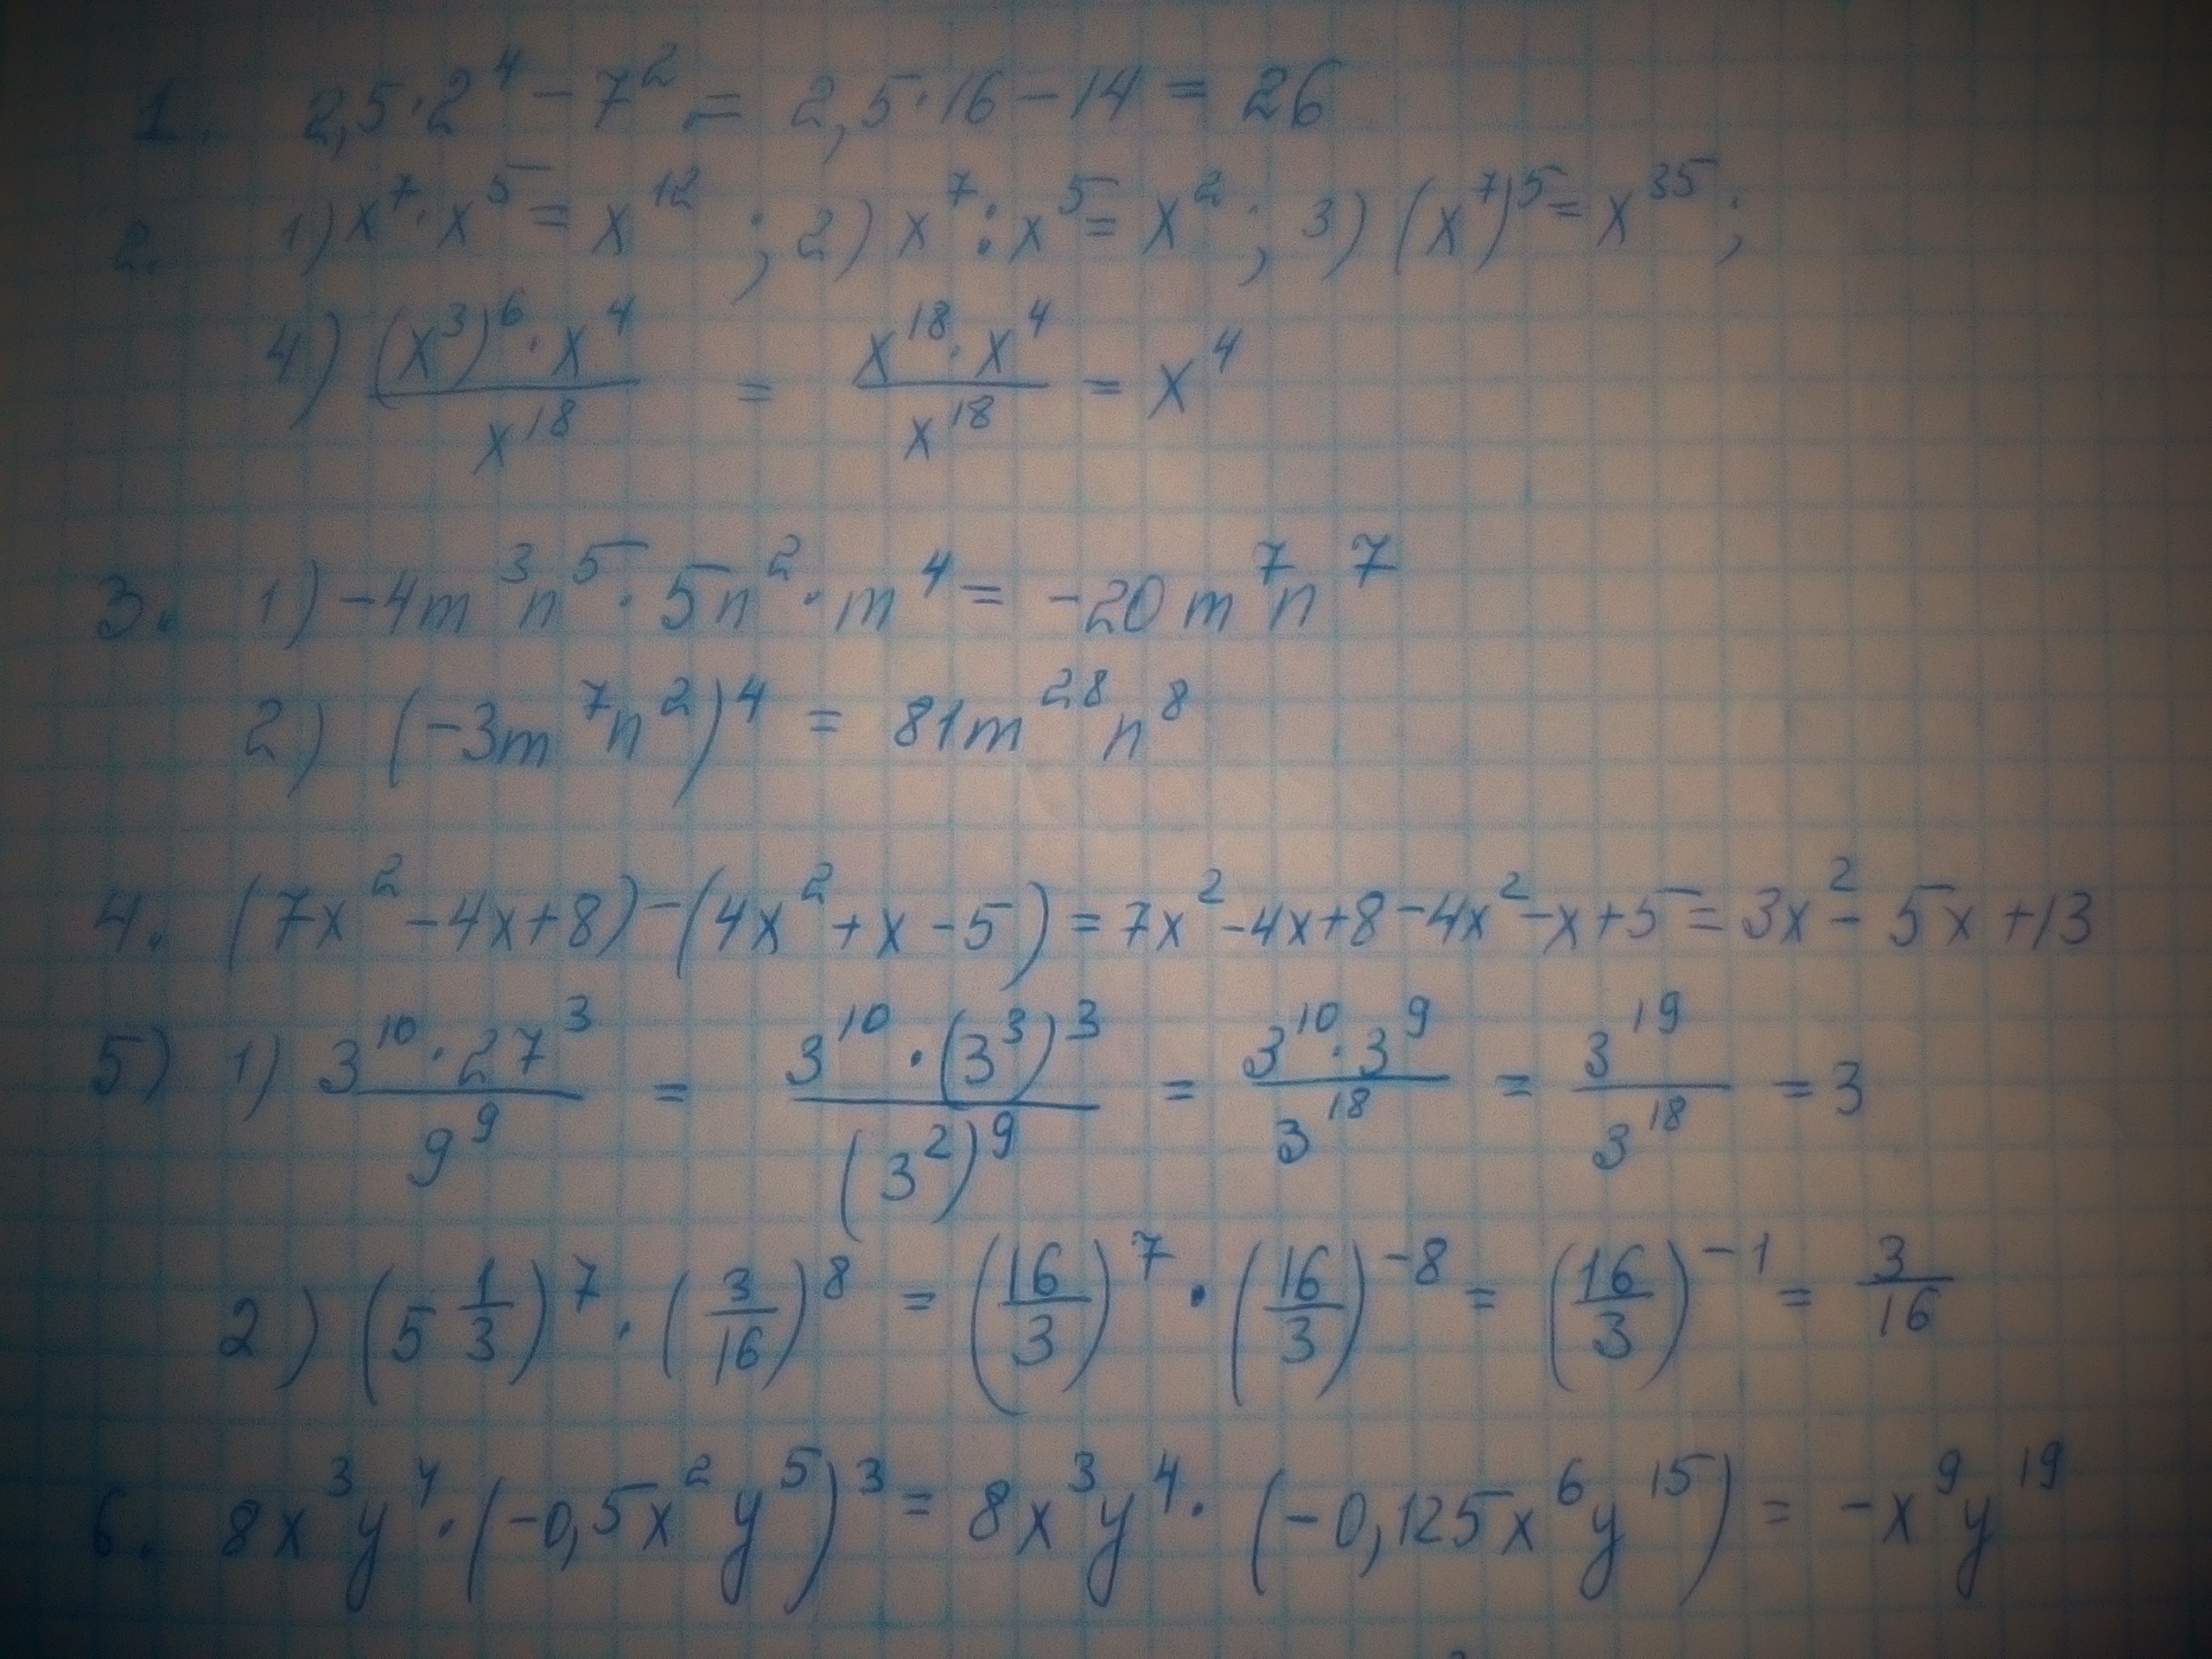 1. 2,5·2⁴ − 7² = 2,5·16 − 14 = 26
2. 1) x⁷·x⁵ = x¹² ; 2) x⁷:x⁵ = x² ; 3) (x⁷)⁵ = x³⁵ ;
4) (x³)⁶·x⁴ / x¹⁸ = x¹⁸·x⁴ / x¹⁸ = x⁴
3. 1) −4m³n⁵·5n²·m⁴ = −20m⁷n⁷
2) (−3m⁷n²)⁴ = 81m²⁸n⁸
4. (7x² − 4x + 8) − (4x² + x − 5) = 7x² − 4x + 8 − 4x² − x + 5 = 3x² − 5x + 13
5) 1) 3¹⁰·27³ / 9⁹ = 3¹⁰·(3³)³ / (3²)⁹ = 3¹⁰·3⁹ / 3¹⁸ = 3¹⁹ / 3¹⁸ = 3
2) (5 1/3)⁷·(3/16)⁸ = (16/3)⁷·(16/3)⁻⁸ = (16/3)⁻¹ = 3/16
6. 8x³y⁴·(−0,5x²y⁵)³ = 8x³y⁴·(−0,125x⁶y¹⁵) = −x⁹y¹⁹